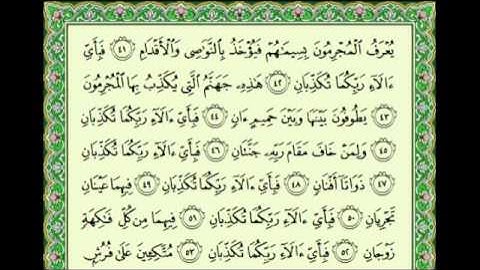 يُعْرَفُ ٱلْمُجْرِمُونَ بِسِيمَٰهُمْ فَيُؤْخَذُ بِٱلنَّوَٰصِى وَٱلْأَقْدَامِ ٤١ فَبِأَىِّ
ءَالَآءِ رَبِّكُمَا تُكَذِّبَانِ ٤٢ هَٰذِهِۦ جَهَنَّمُ ٱلَّتِى يُكَذِّبُ بِهَا ٱلْمُجْرِمُونَ
٤٣ يَطُوفُونَ بَيْنَهَا وَبَيْنَ حَمِيمٍ ءَانٍ ٤٤ فَبِأَىِّ ءَالَآءِ رَبِّكُمَا تُكَذِّبَانِ
٤٥ وَلِمَنْ خَافَ مَقَامَ رَبِّهِۦ جَنَّتَانِ ٤٦ فَبِأَىِّ ءَالَآءِ رَبِّكُمَا تُكَذِّبَانِ
٤٧ ذَوَاتَآ أَفْنَانٍ ٤٨ فَبِأَىِّ ءَالَآءِ رَبِّكُمَا تُكَذِّبَانِ ٤٩ فِيهِمَا عَيْنَانِ
تَجْرِيَانِ ٥٠ فَبِأَىِّ ءَالَآءِ رَبِّكُمَا تُكَذِّبَانِ ٥١ فِيهِمَا مِن كُلِّ فَٰكِهَةٍ
زَوْجَانِ ٥٢ فَبِأَىِّ ءَالَآءِ رَبِّكُمَا تُكَذِّبَانِ ٥٣ مُتَّكِـِٔينَ عَلَىٰ فُرُشٍۭ